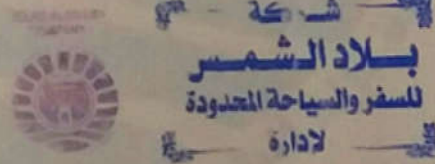 شركة
بلاد الشمس
للسفر والسياحة المحدودة
لادارة